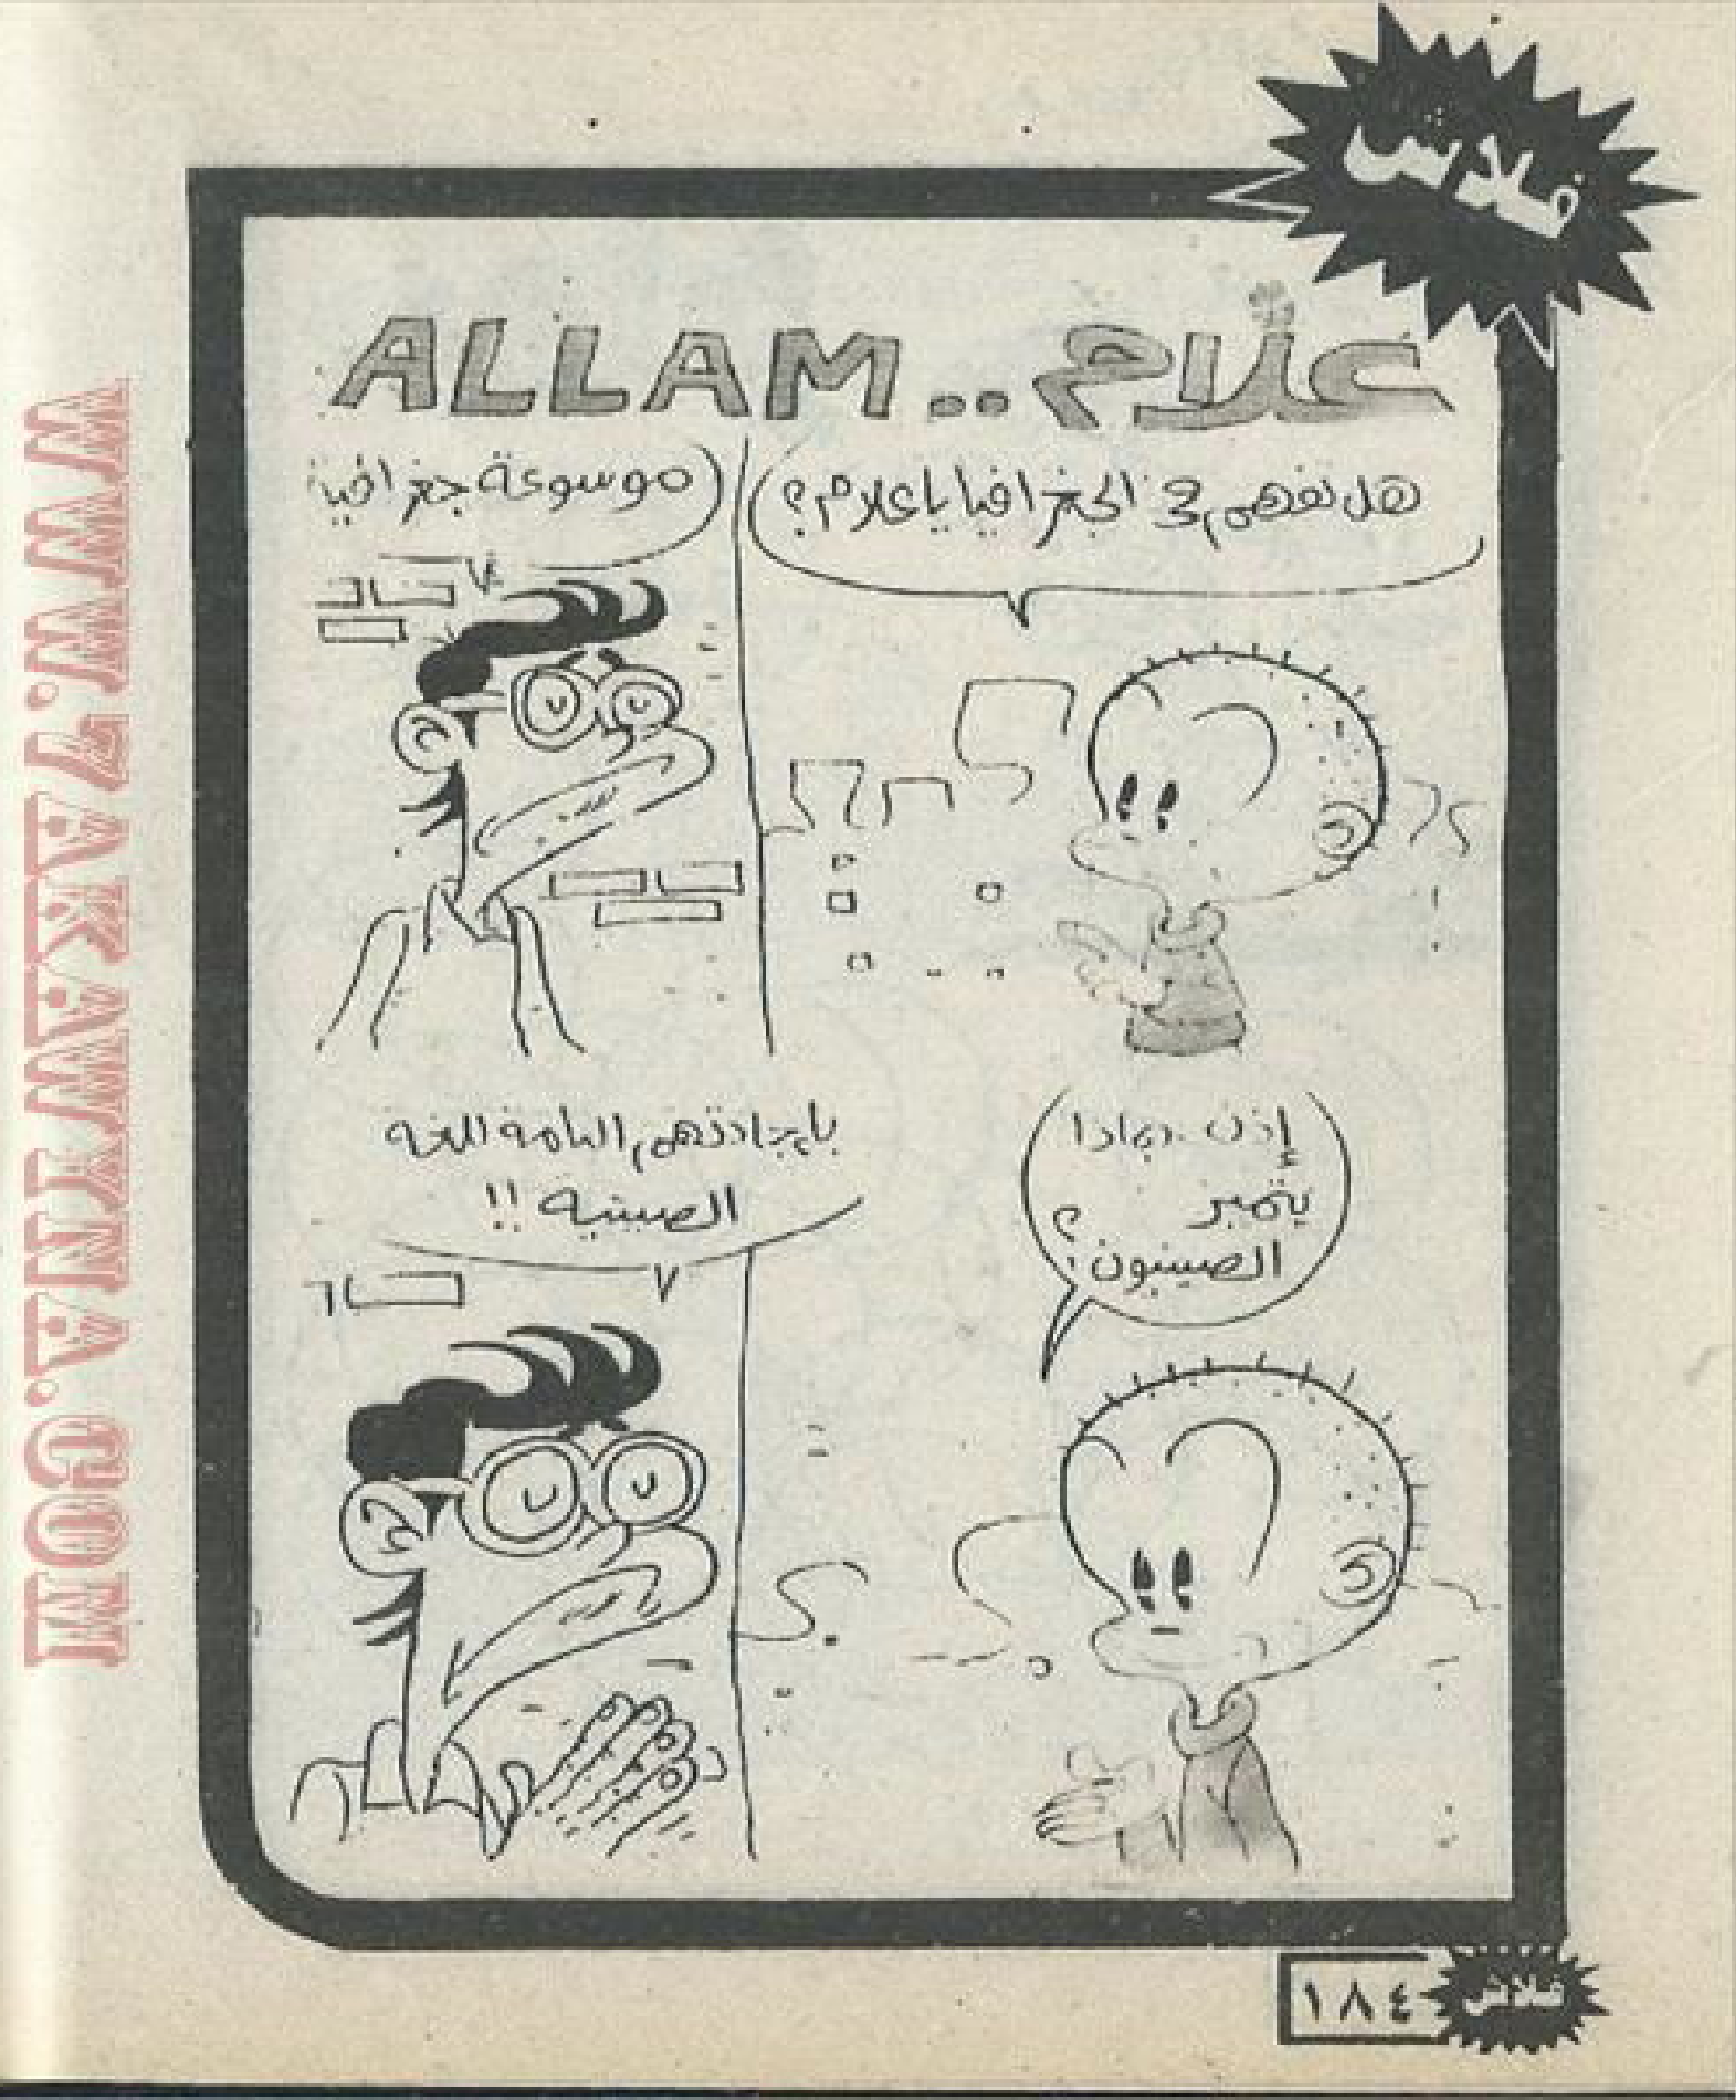 فلاش
علام.. ALLAM
هل تفهم في الجغرافيا يا علام؟
موسوعة جغرافية
إذن.. بماذا
يتميز
الصينيون؟
بإجادتهم التامة للغة
الصينية !!
فلاش ١٨٤
WWW.7AKAWINA.COM